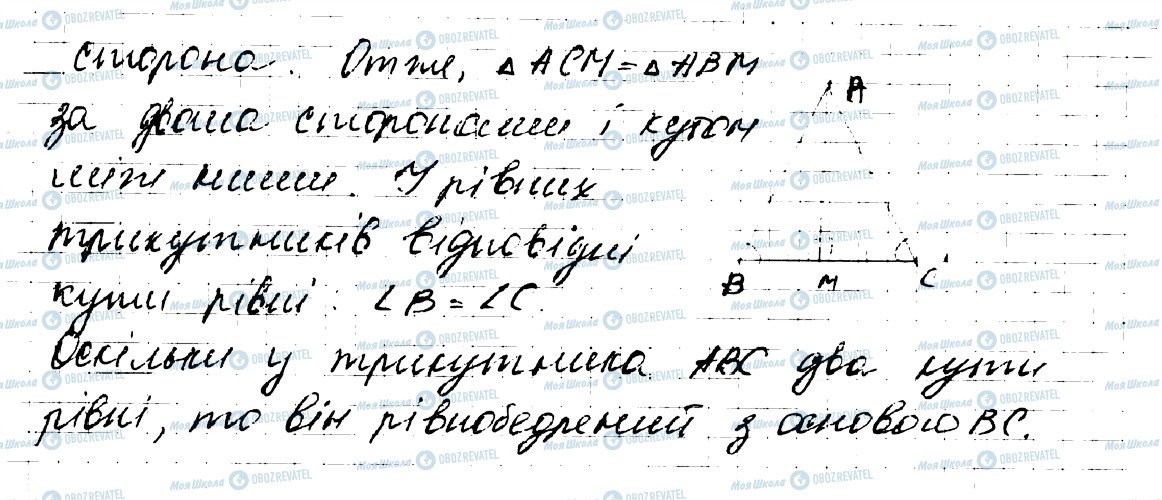 сторона. Отже, △ ACM = △ ABM
за двома сторонами і кутом
між ними. У рівних
трикутників відповідні
кути рівні. ∠B = ∠C.
Оскільки у трикутника ABC два кути
рівні, то він рівнобедрений з основою BC.
A
B M C